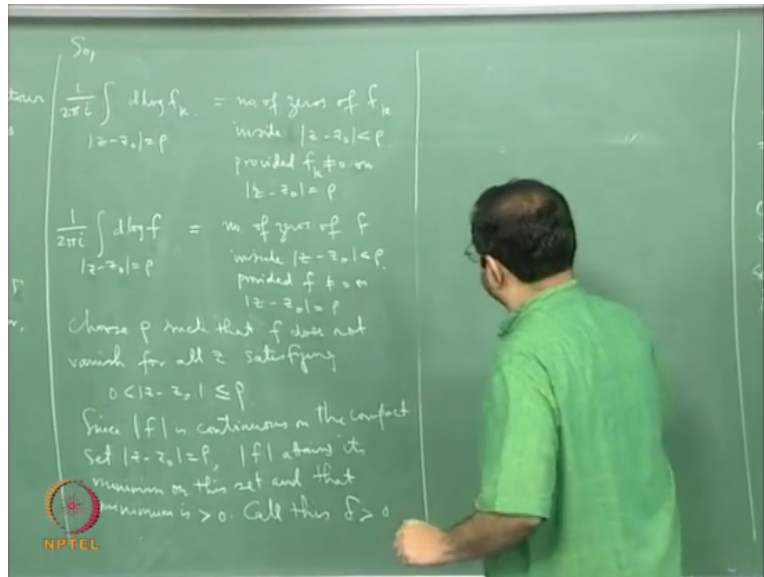 So,
1/2πi ∫ dlog f_k = no. of zeros of f_k
|z-z₀|=ρ
inside |z-z₀|<ρ.
provided f_k ≠ 0 on
|z-z₀|=ρ
1/2πi ∫ dlog f = no. of zeros of f
|z-z₀|=ρ
inside |z-z₀|<ρ.
provided f ≠ 0 on
|z-z₀|=ρ
Choose ρ such that f does not
vanish for all z satisfying
0<|z-z₀|≤ρ.
Since |f| is continuous on the compact
set |z-z₀|=ρ, |f| attains its
minimum on this set and that
minimum is >0. Call this δ>0
NPTEL